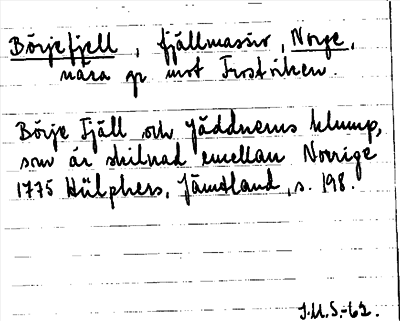 Börjefjell, fjällmassiv, Norge,
nära gr mot Frostviken.
Börje Fjäll och Jäddnems klump,
som är skilnad emellan Norrige
1775 Hülphers, Jämtland, s. 198.
J.M.S.-62.